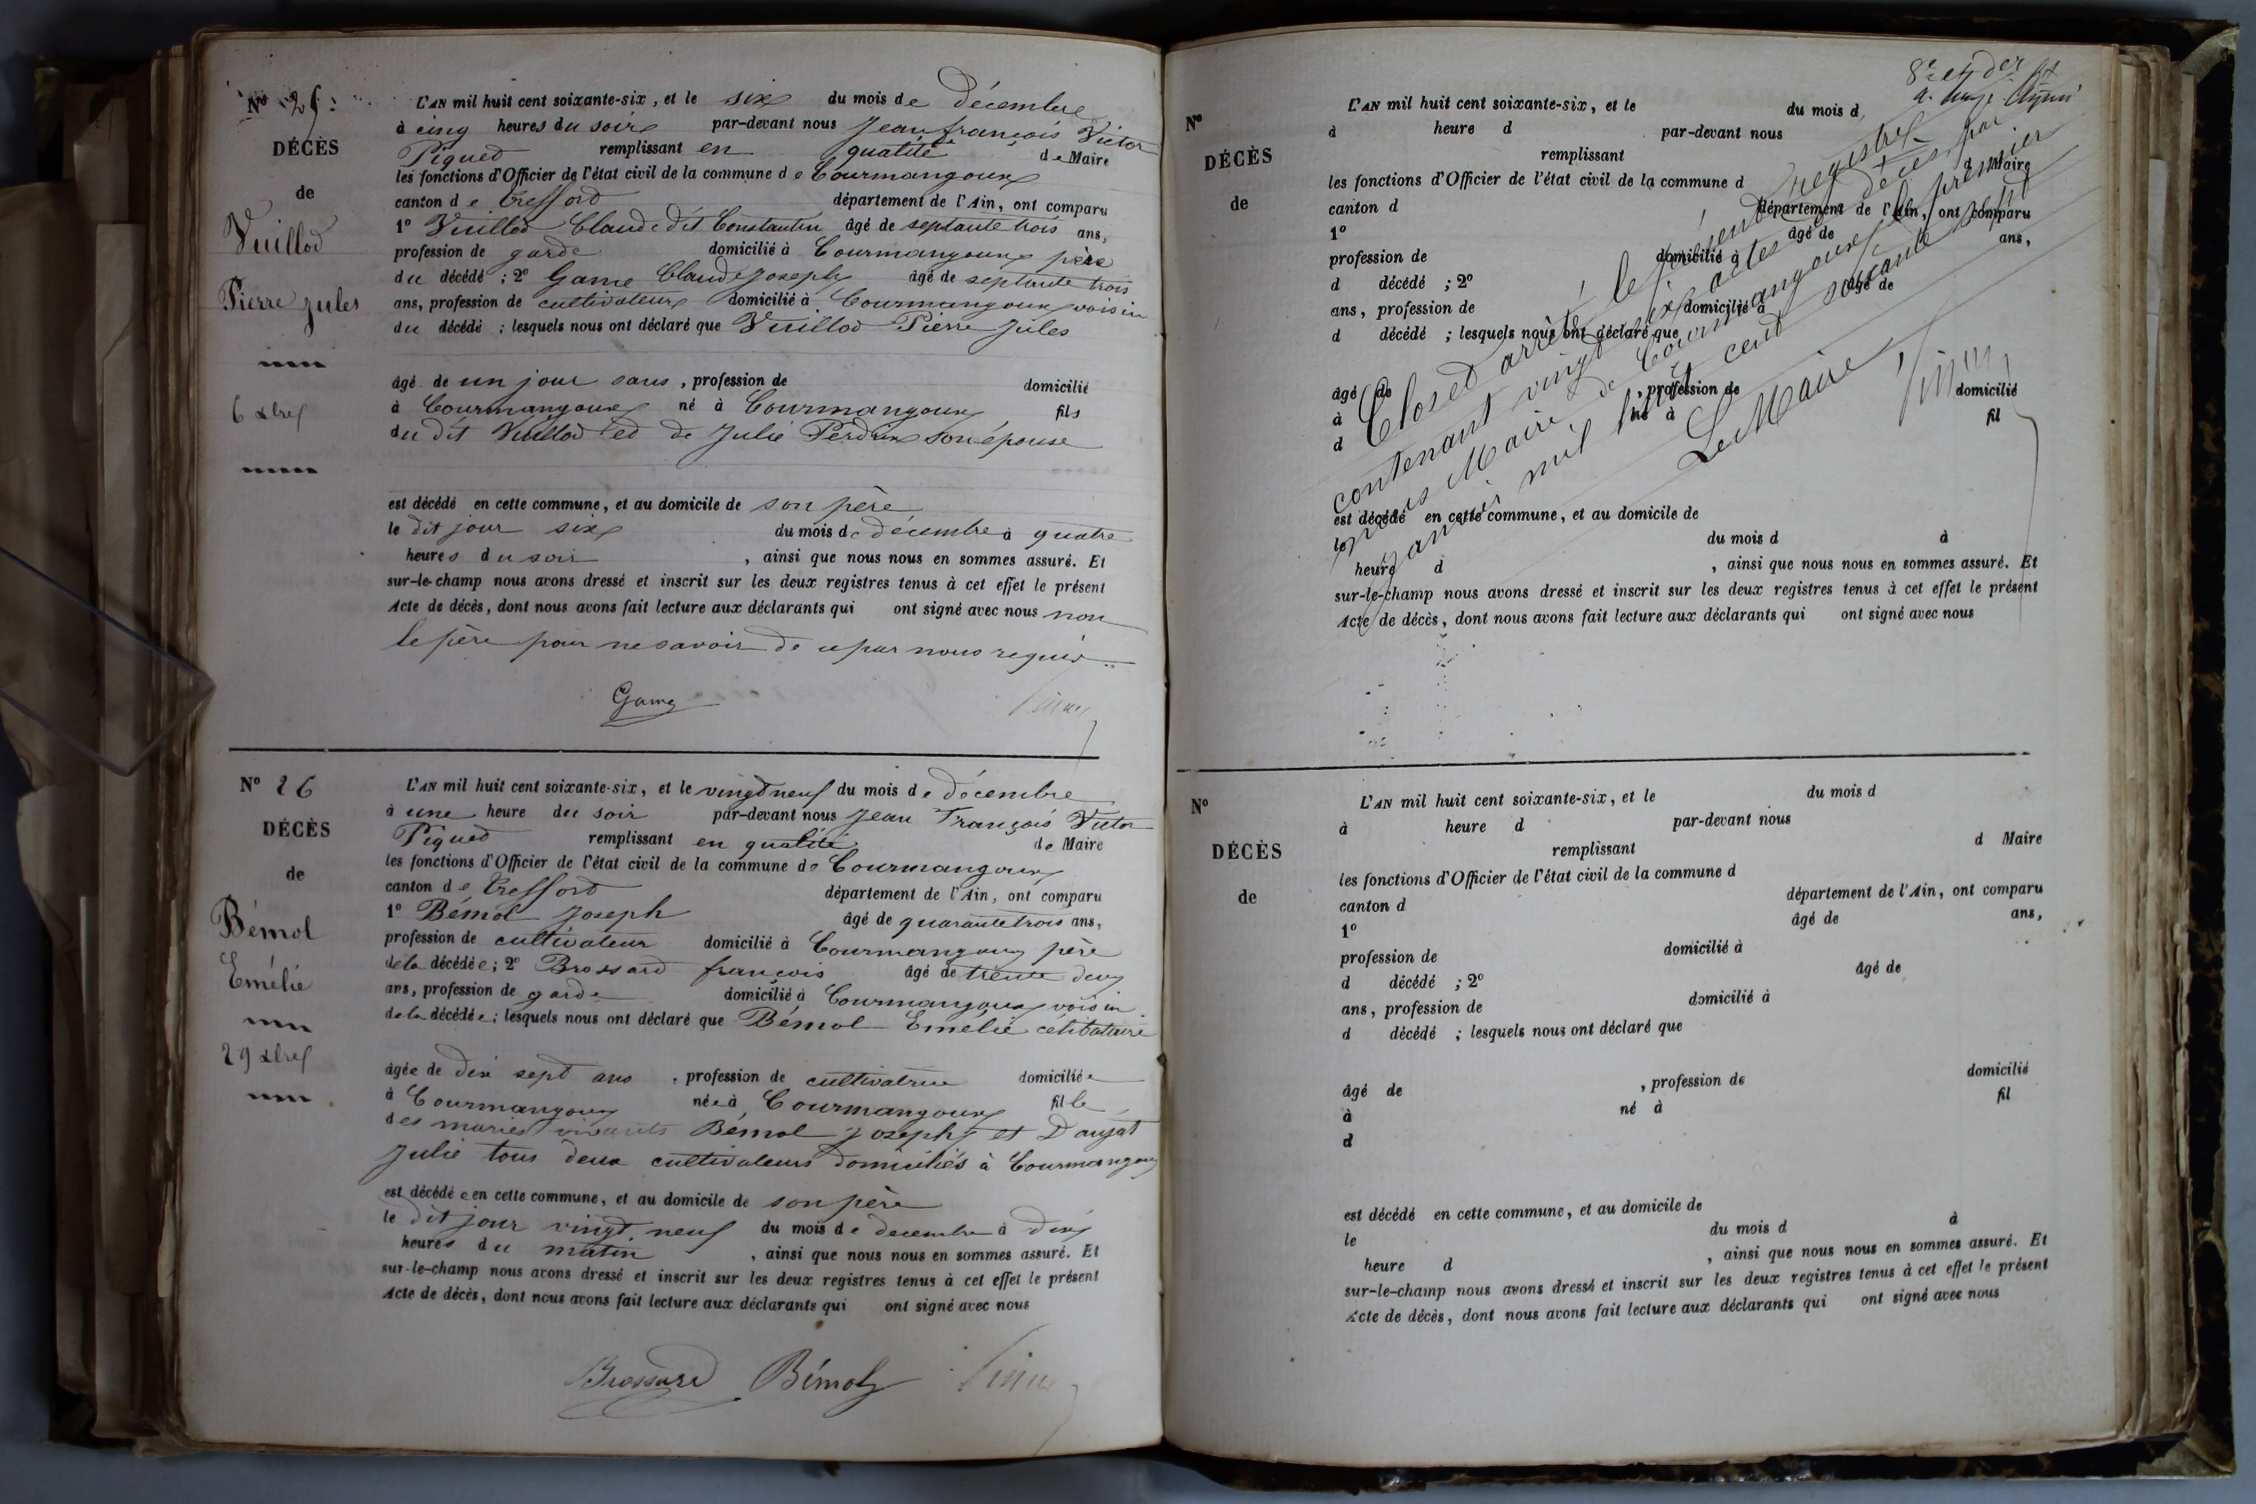 Nº 25
DÉCÈS
de
Vuillod
Pierre Jules
6 Xbre
L'AN mil huit cent soixante-six, et le six du mois de décembre
à cinq heures du soir par-devant nous Jean françois Victor
Piqued remplissant en qualité de Maire
les fonctions d'Officier de l'état civil de la commune de Courmangoux
canton de Treffort département de l'Ain, ont comparu
1º Vuillod Claude dit Constantin âgé de septante trois ans,
profession de garde domicilié à Courmangoux père
du décédé ; 2º Game Claude Joseph âgé de septante trois
ans, profession de cultivateur domicilié à Courmangoux voisin
du décédé ; lesquels nous ont déclaré que Vuillod Pierre Jules
âgé de un jour sans, profession de domicilié
à Courmangoux né à Courmangoux fils
du dit Vuillod et de Julie Perdrix son épouse
est décédé en cette commune, et au domicile de son père
le dit jour six du mois de décembre à quatre
heures du soir, ainsi que nous nous en sommes assuré. Et
sur-le-champ nous avons dressé et inscrit sur les deux registres tenus à cet effet le présent
Acte de décès, dont nous avons fait lecture aux déclarants qui ont signé avec nous non
le père pour ne savoir de ce par nous requis
Game
Nº 26
DÉCÈS
de
Bémol
Emélie
29 Xbre
L'AN mil huit cent soixante-six, et le vingt neuf du mois de décembre
à une heure du soir par-devant nous Jean François Victor
Piqued remplissant en qualité de Maire
les fonctions d'Officier de l'état civil de la commune de Courmangoux
canton de Treffort département de l'Ain, ont comparu
1º Bémol Joseph âgé de quarante trois ans,
profession de cultivateur domicilié à Courmangoux père
de la décédée ; 2º Brossard françois âgé de trente deux
ans, profession de garde domicilié à Courmangoux voisin
de la décédée ; lesquels nous ont déclaré que Bémol Emélie célibataire
âgée de dix sept ans, profession de cultivatrice domiciliée
à Courmangoux née à Courmangoux fille
des mariés vivants Bémol Joseph et Daujat
Julie tous deux cultivateurs domiciliés à Courmangoux
est décédée en cette commune, et au domicile de son père
le dit jour vingt neuf du mois de decembre à dix
heures du matin, ainsi que nous nous en sommes assuré. Et
sur-le-champ nous avons dressé et inscrit sur les deux registres tenus à cet effet le présent
Acte de décès, dont nous avons fait lecture aux déclarants qui ont signé avec nous
Brossard Bémol
8e et der
Nº
DÉCÈS
de
L'AN mil huit cent soixante-six, et le du mois d
à heure d par-devant nous
remplissant d Maire
les fonctions d'Officier de l'état civil de la commune d
canton d département de l'Ain, ont comparu
1º âgé de ans,
profession de domicilié à
d décédé ; 2º âgé de
ans, profession de domicilié à
d décédé ; lesquels nous ont déclaré que
âgé de, profession de domicilié
à né à fil
d
est décédé en cette commune, et au domicile de
le du mois d à
heure d, ainsi que nous nous en sommes assuré. Et
sur-le-champ nous avons dressé et inscrit sur les deux registres tenus à cet effet le présent
Acte de décès, dont nous avons fait lecture aux déclarants qui ont signé avec nous
Clos et arrêté le présent registre
contenant vingt six actes de décès par
nous Maire de Courmangoux le premier
janvier mil huit cent soixante sept
Le Maire
Nº
DÉCÈS
de
L'AN mil huit cent soixante-six, et le du mois d
à heure d par-devant nous
remplissant d Maire
les fonctions d'Officier de l'état civil de la commune d
canton d département de l'Ain, ont comparu
1º âgé de ans,
profession de domicilié à
d décédé ; 2º âgé de
ans, profession de domicilié à
d décédé ; lesquels nous ont déclaré que
âgé de, profession de domicilié
à né à fil
d
est décédé en cette commune, et au domicile de
le du mois d à
heure d, ainsi que nous nous en sommes assuré. Et
sur-le-champ nous avons dressé et inscrit sur les deux registres tenus à cet effet le présent
Acte de décès, dont nous avons fait lecture aux déclarants qui ont signé avec nous